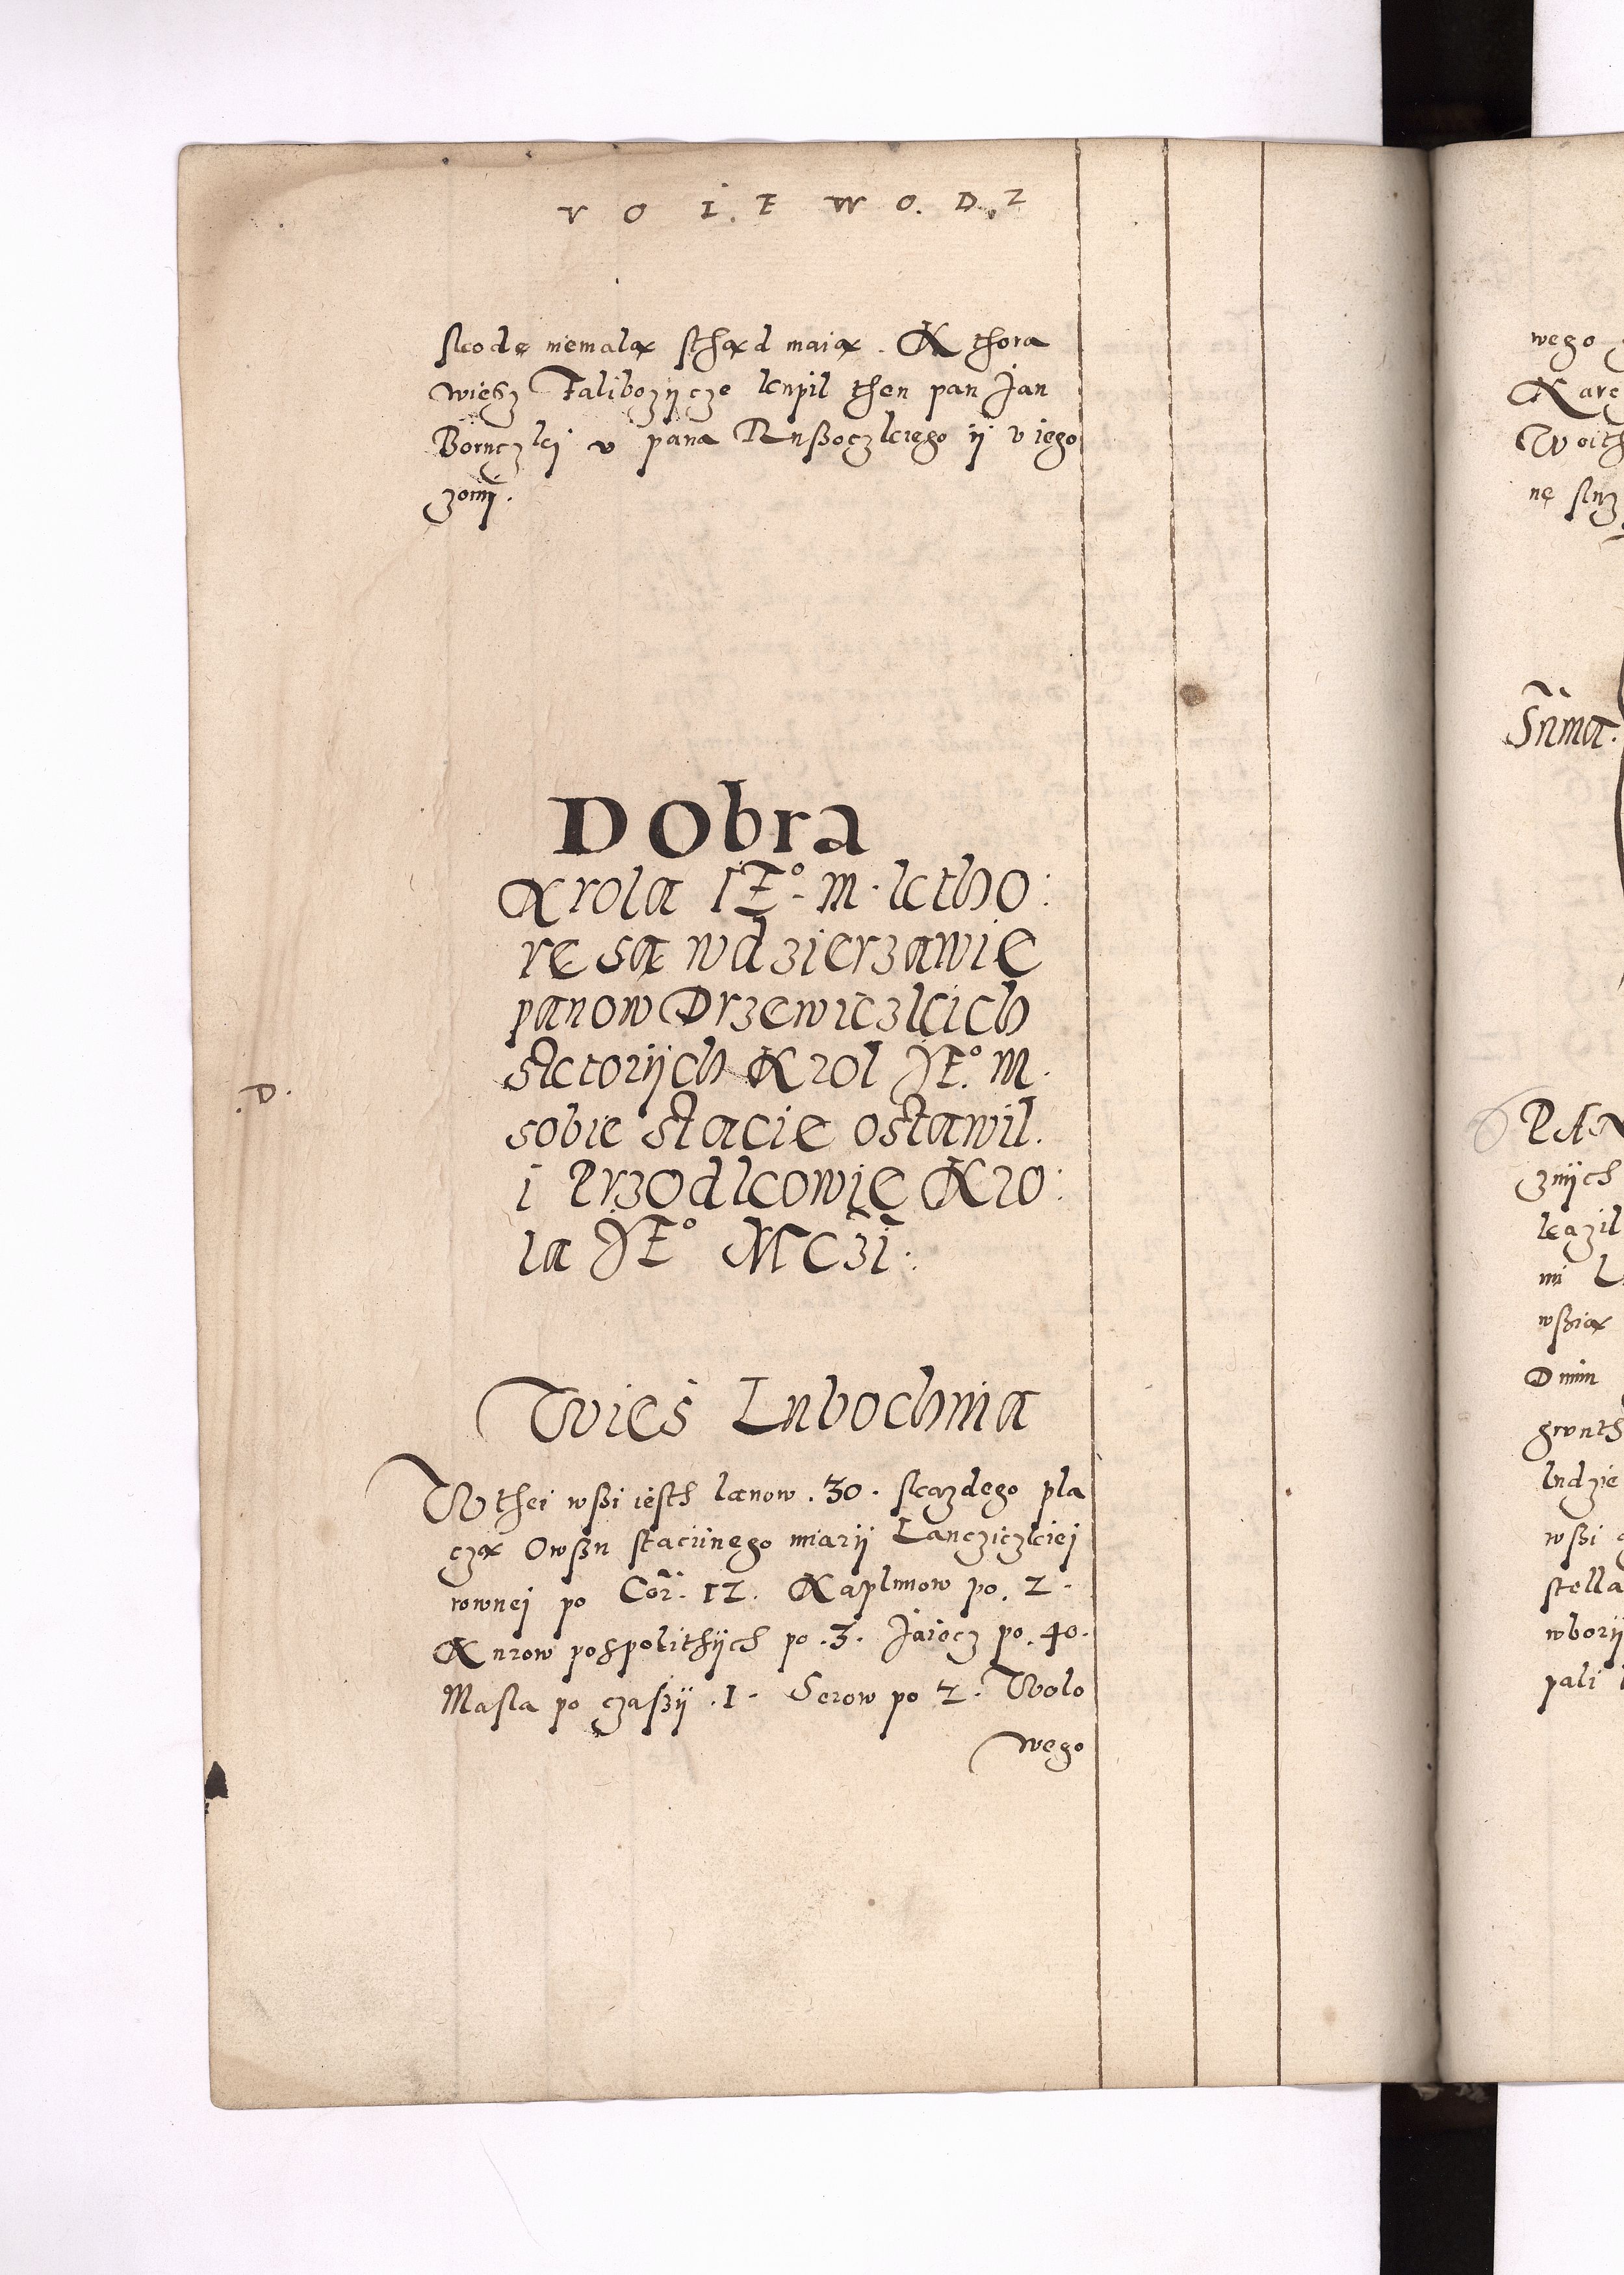 V O I. E W O. D. Z
skodę niemalą sthąd maią. Kthora
wiesz Falibozycze kupil then pan Jan
Boruczki v pana Rusoczkiego ÿ v iego
zony.
Dobra
Krola IE°. M. ktho:
re są w dzierzawie
panow Drzewiczkich
sktorÿch Krol JE°. M.
sobie stacie ostawil.
i Przodkowie Kro:
la JE° MCzi:
Wieś Lubochnia
.D.
W thei wsßi iesth lanow .30. skazdego pla
czą Owßu staciinego miarÿ Lancziczkiej
rownej po Cor. 12. Kaplunow po. 2.
Kurow pospolithÿch po .3. Jaiecz po. 40.
Masla po czaßÿ .1. Serow po 2. Wolo
wego
wego
Karę
Woith
nę
Suma.
PAN
znÿch
kazil
mi
wßią
grunth
ludzie
wßi
stella
wborÿ
pali